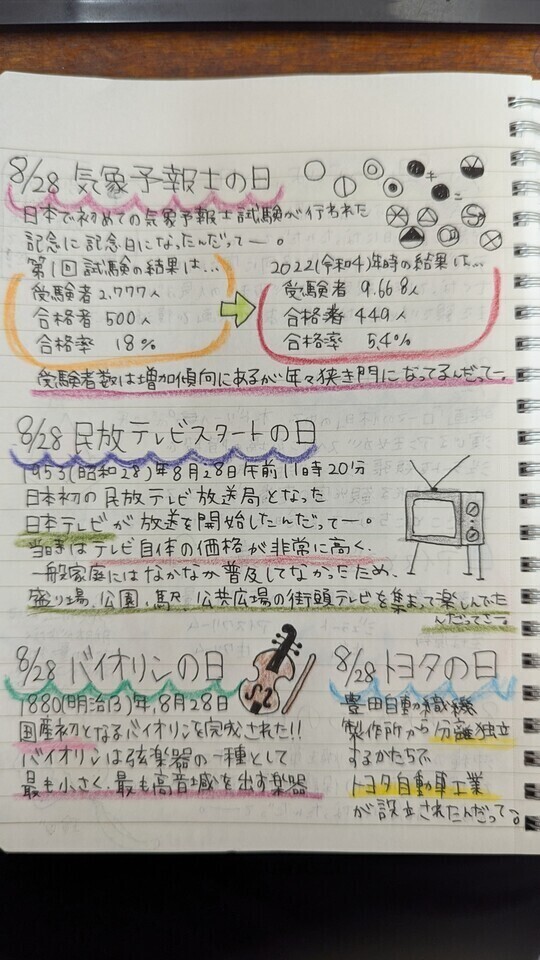 8/28 気象予報士の日
日本で初めての気象予報士試験が行われた
記念に記念日になったんだってー。
第1回試験の結果は…
受験者 2,777人
合格者 500人
合格率 18%
2022(令和4)年時の結果は…
受験者 9,668人
合格者 449人
合格率 5.4%
受験者数は増加傾向にあるが年々狭き門になってるんだってー。
8/28 民放テレビスタートの日
1953(昭和28)年8月28日午前11時20分
日本初の民放テレビ放送局となった
日本テレビが放送を開始したんだってー。
当時はテレビ自体の価格が非常に高く、
一般家庭にはなかなか普及してなかったため、
盛り場、公園、駅、公共広場の街頭テレビを集まって楽しんでた
んだってさー。
8/28 バイオリンの日
1880(明治13)年、8月28日
国産初となるバイオリンを完成された!!
バイオリンは弦楽器の一種として
最も小さく、最も高音域を出す楽器
8/28 トヨタの日
豊田自動織機
製作所から分離独立
するかたちで
トヨタ自動車工業
が設立されたんだって。